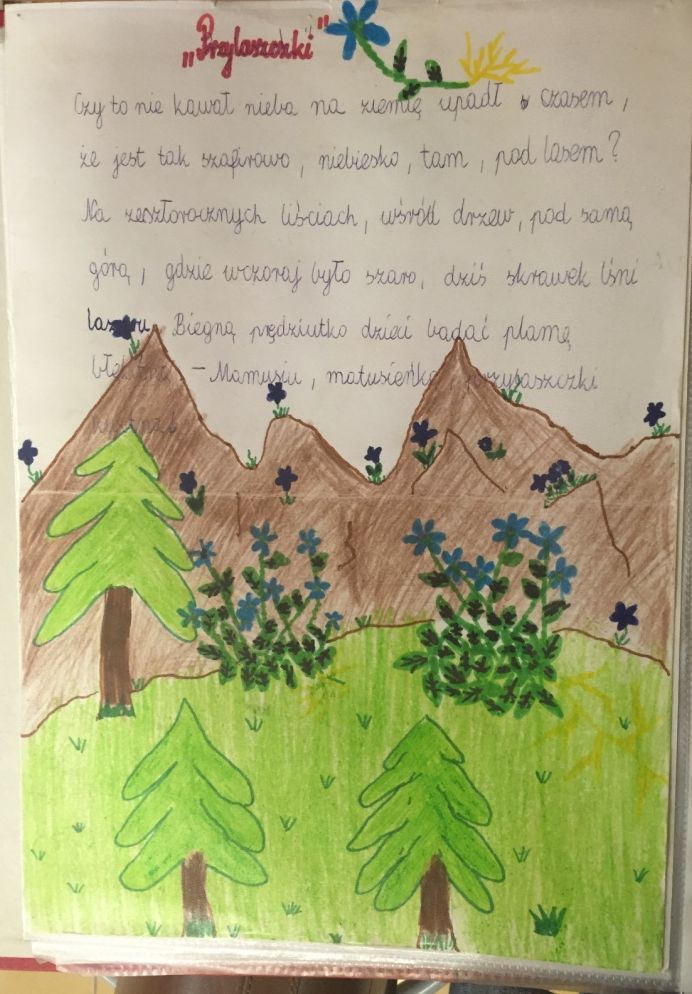 „Przylaszczki"
Czy to nie kawał nieba na ziemię upadł czasem,
że jest tak szafirowo, niebiesko, tam, pod lasem?
Na zeszłorocznych liściach, wśród drzew, pod samą
górą, gdzie wczoraj było szaro, dziś skrawek lśni
lazuru. Biegną prędziutko dzieci badać plamę
błękitną - Mamusiu, matusieńko, przylaszczki